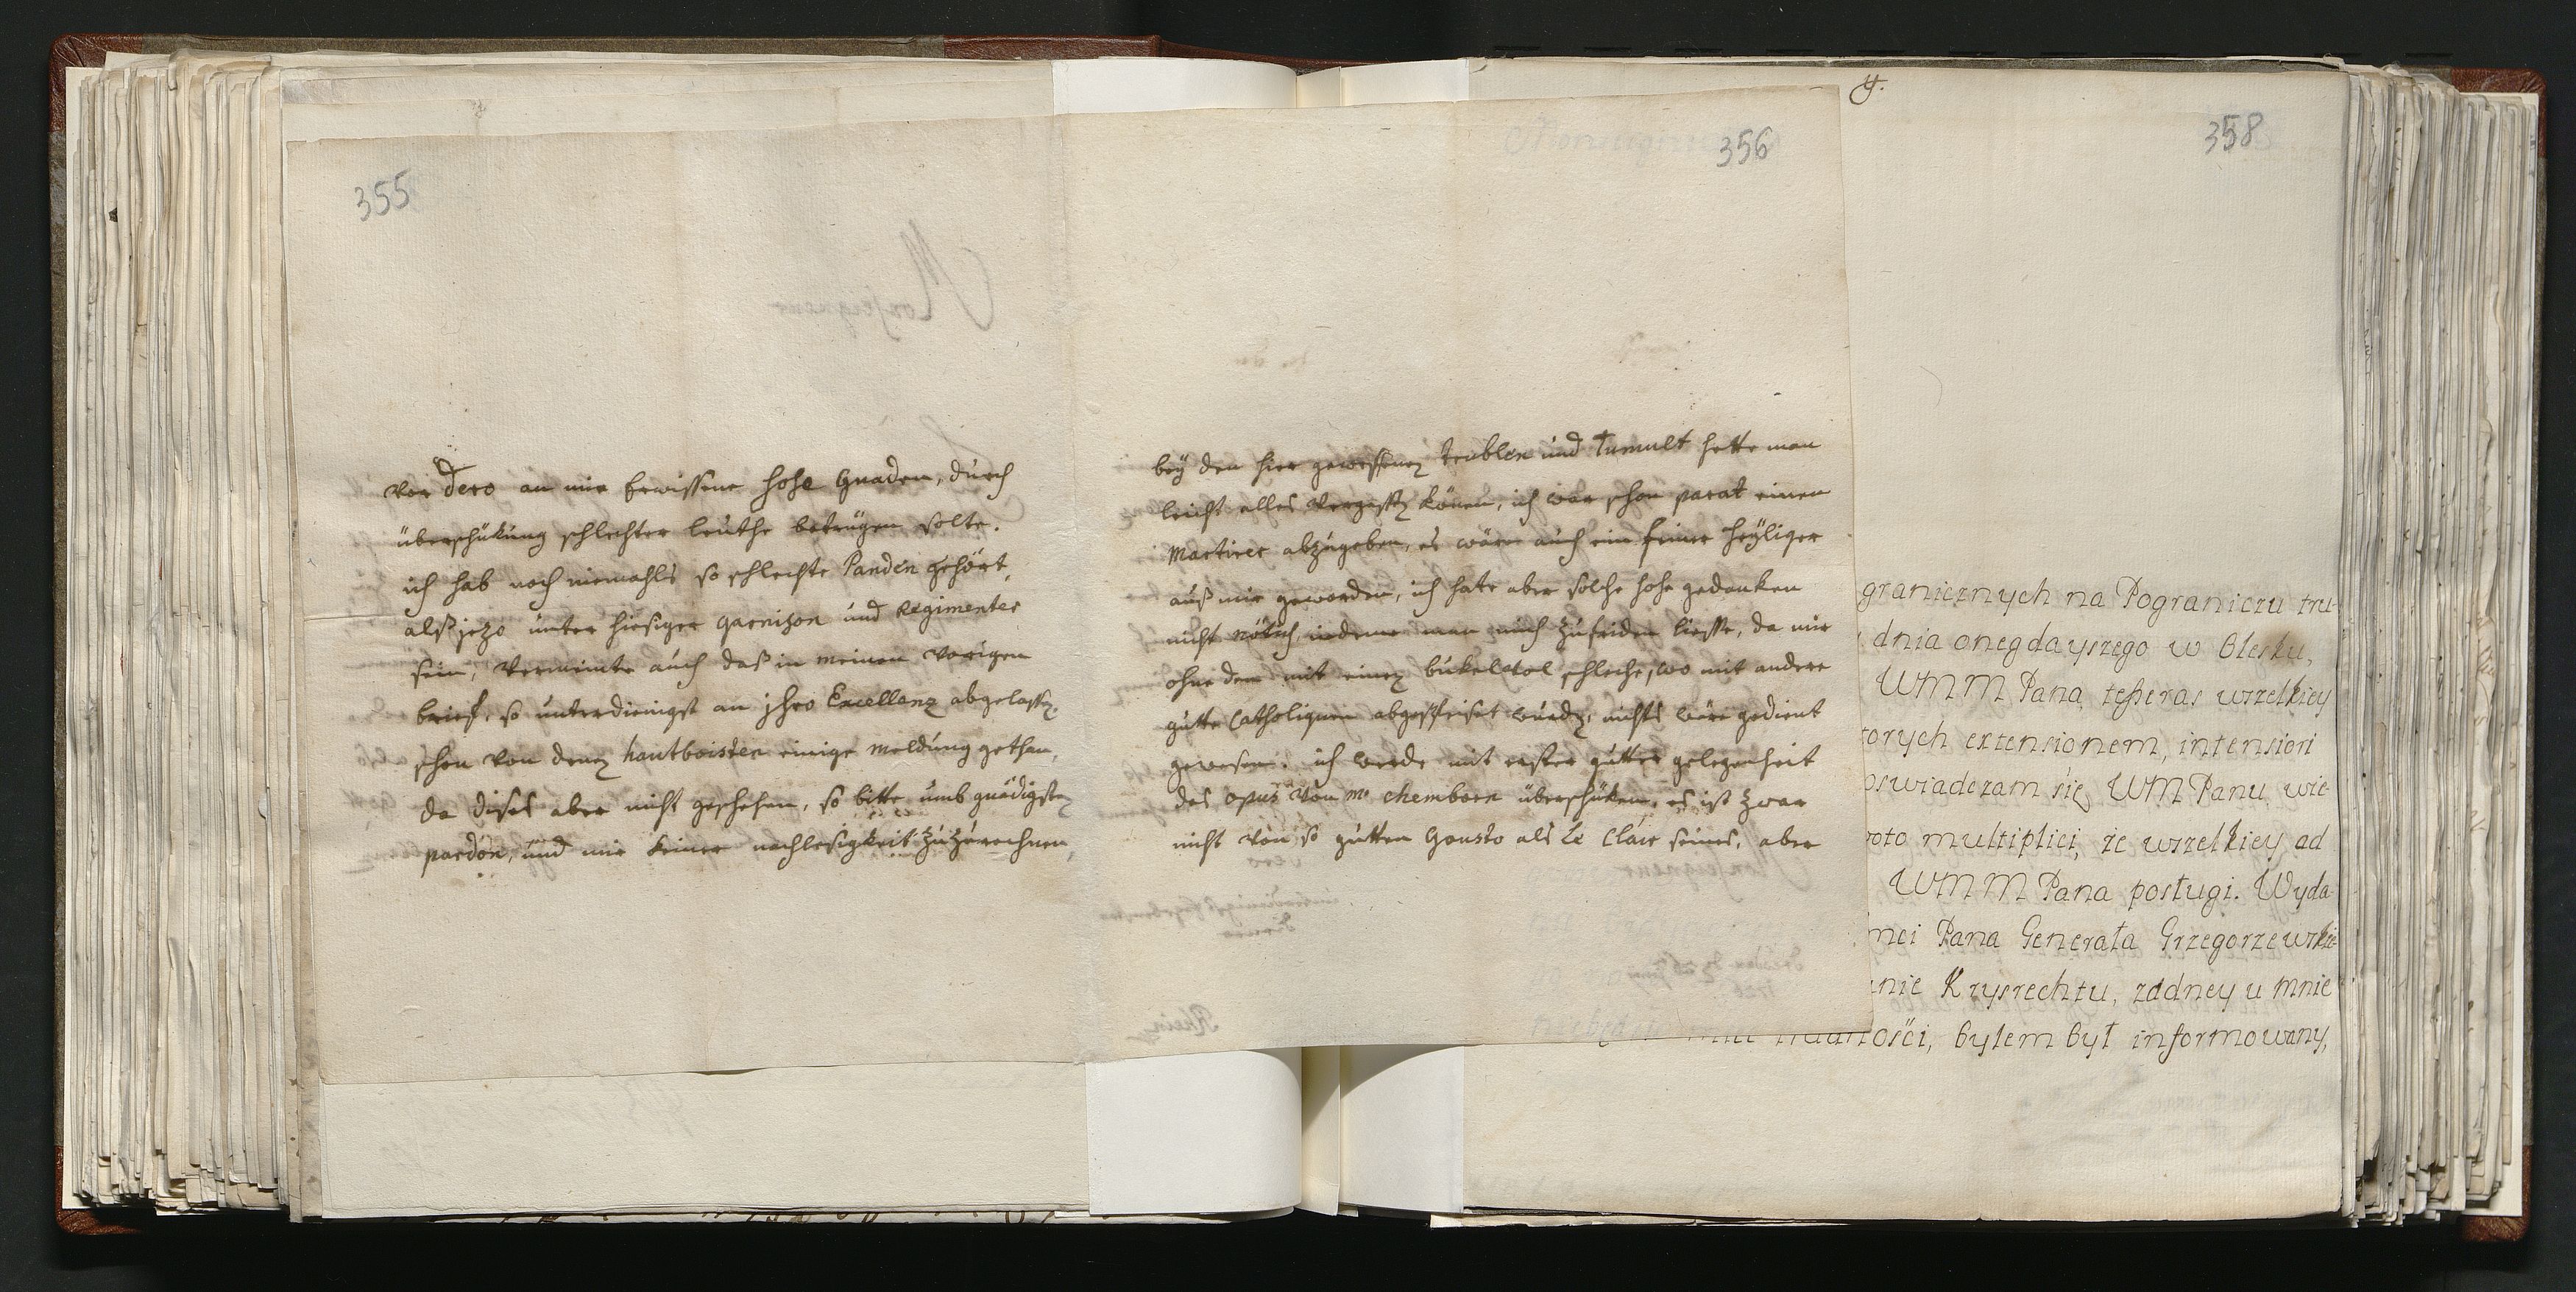 355
vor Dero an mir Erwissene hohe Gnaden, durch
überschükung schlechter leuthe betrügen solte.
ich hab noch niemahls so schlechte Banden gehört,
alß jezo unter hiesiger garnison und Regimenter
sein, vermeinte auch daß in meinen vorigen
brief, so unterdienigst an jhro Excellenz abgelassen,
schon von denen hautboisten einige meldung gethan,
da dises aber nicht geschehen, so bitte umb gnädigsten
pardon, und mir keiner nachlesigkeit zuzurechnen,
356
bey den hier gewessenen trublen und Tumult hette man
leicht alles vergessen können, ich war schon parat einen
Martirer abzugeben, es wäre auch ein feiner Heyliger
auß mir geworden, ich hate aber solche hohe gedanken
nicht nötich, indeme man mich zufriden liesse, da mir
ohne dem mit einen schleche, wo mit andere
gutte Catholiquen abgespeiset wurden, nichts wäre gedient
gewesen. ich werde mit erster gutter gelegenheit
das opus von mr chemborn überschüken, es ist zwar
nicht von so gutten Gousto als Le Clair seines, aber
358
granicznych na Pograniczu tru
dnia onegdayszego w Olesku,
WMM Pana tesseras wszelkiey
torych extensionem, intensiori
oswiadczam się WM Panu, wie
voto multiplici, że wszelkiey ad
WMM Pana posługi. Wyda
mci Pana Generała Grzegorzewskie
nie Krysrechtu, żadney u mnie
trudności, byłem był informowany,